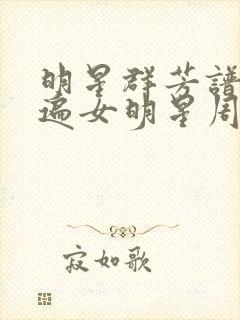 明星群芳譜
遍女明星周
寂如歌